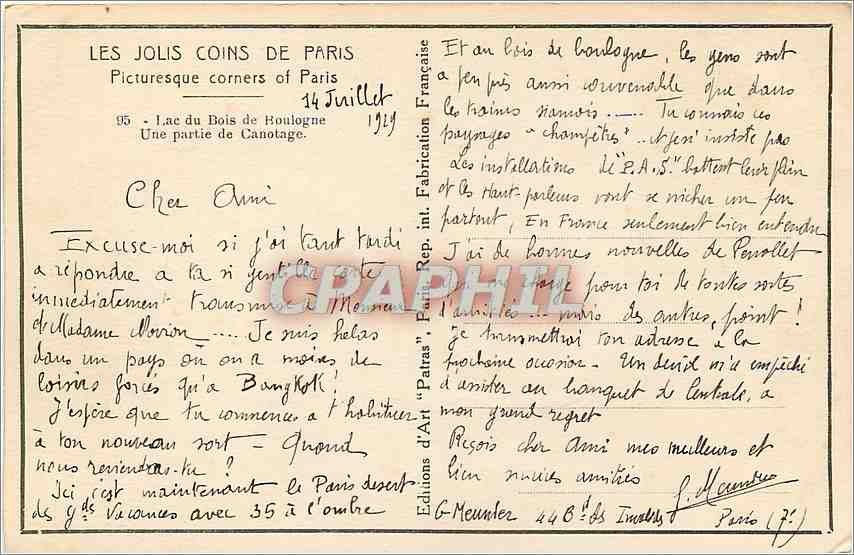 LES JOLIS COINS DE PARIS
Picturesque corners of Paris
14 Juillet
1929
95 - Lac du Bois de Boulogne
Une partie de Canotage.
Cher Ami
Excuse-moi si j'ai tant tardé
à répondre à ta si gentille carte
immédiatement transmise à Monsieur
& Madame .... Je suis hélas
dans un pays où on a moins de
loisirs forcés qu'à Bangkok !
J'espère que tu commences à t'habituer
à ton nouveau sort - Quand
nous reviendras-tu ?
Ici c'est maintenant le Paris désert
des gdes vacances avec 35 à l'ombre
Editions d'Art "Patras", Paris, Rep. int. Fabrication Française
Et au bois de boulogne, les gens sont
à peu près aussi convenable que dans
les trains siamois ..... Tu connais ces
paysages "champêtres" .. et je n'insiste pas
Les installations de "P.A.S." battent leur plein
et les Haut-parleurs vont se nicher un peu
partout, En France seulement bien entendu
J'ai de bonnes nouvelles de
qui me charge pour toi de toutes sortes
d'amitiés ... mais des autres, point !
Je transmettrai ton adresse à la
prochaine occasion - Un deuil m'a empêché
d'assister au banquet de Centrale, à
mon grand regret
Reçois cher Ami mes meilleurs et
bien sincères amitiés
G. Meunier
G. Meunier 44 Bd des Invalides Paris (7e)
CPAPHIL